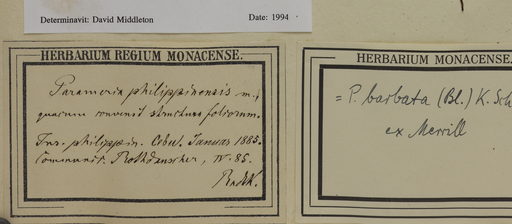 Determinavit: David Middleton Date: 1994
HERBARIUM REGIUM MONACENSE.
Parameria philippinensis m.,
quacum convenit structura foliorum.
Ins. philippin. Cebu. Januar 1865.
Communic. Rothdauscher, N. 85.
Radlk.
HERBARIUM MONACENSE.
= P. barbata (Bl.) K. Sch
ex Merrill